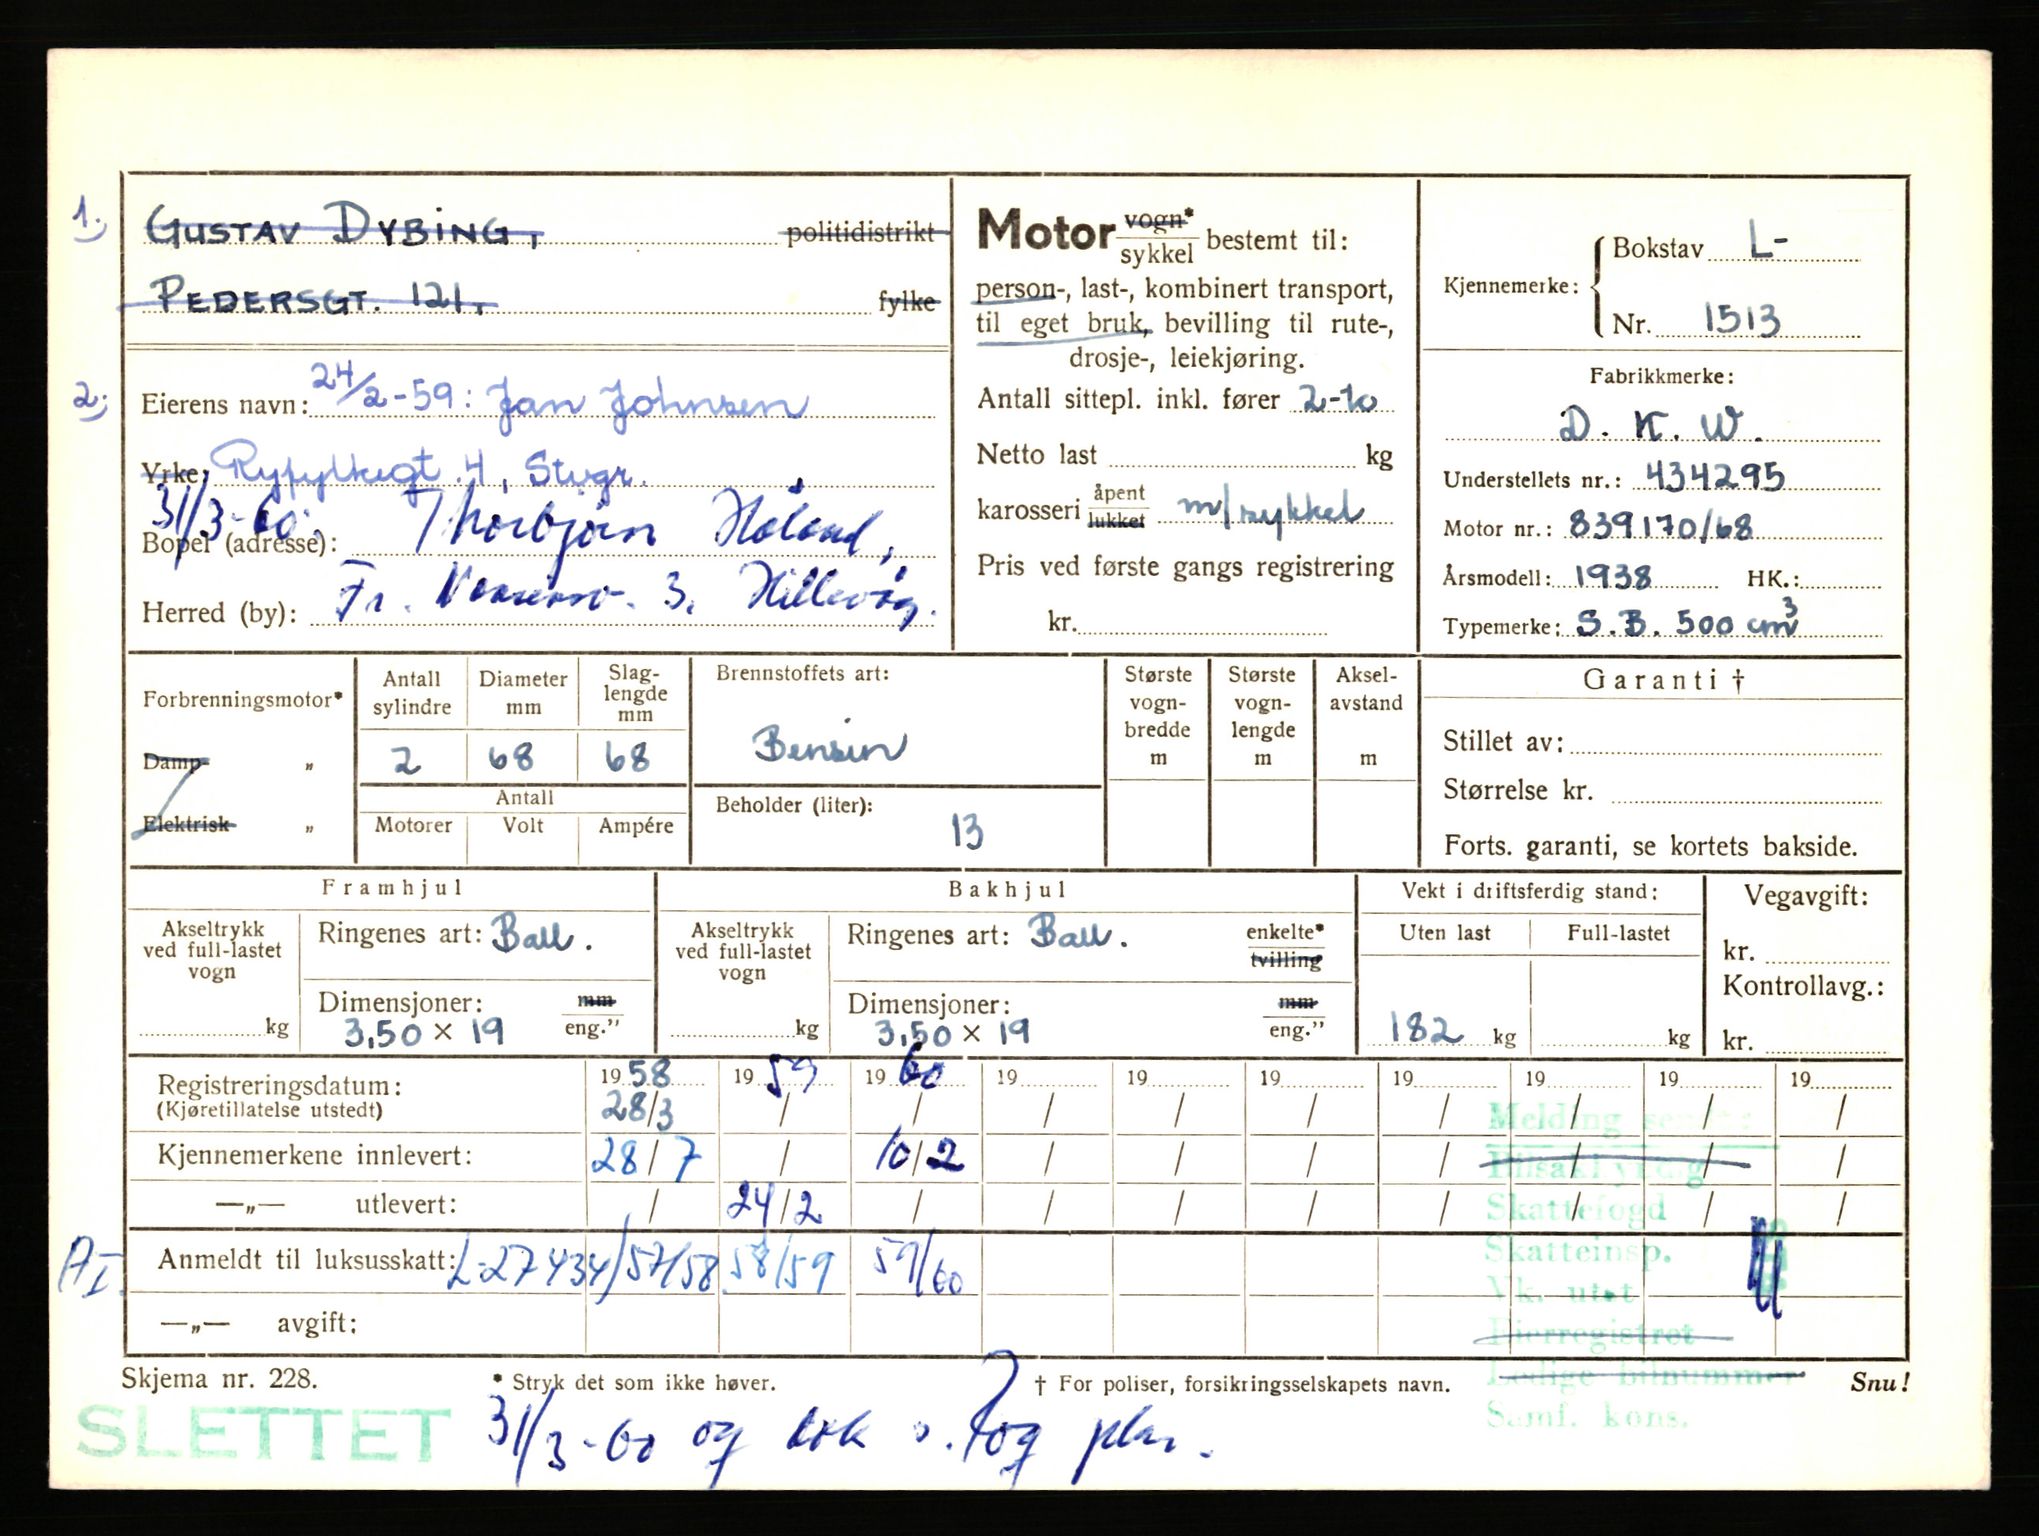 1.
GUSTAV DYBING, politidistrikt
PEDERSGT. 121, fylke
2.
Eierens navn: 24/2-59: Jan Johnsen
Yrke: Ryfylkegt. 4, Stvgr.
31/3-60:
Bopel (adresse): Thorbjørn Høland,
Herred (by): Fr. 3, Hillevåg.
Motor vogn* / sykkel bestemt til:
person-, last-, kombinert transport,
til eget bruk, bevilling til rute-,
drosje-, leiekjøring.
Antall sittepl. inkl. fører 2-to
Netto last kg
karosseri åpent / lukket m/sykkel
Pris ved første gangs registrering
kr.
Kjennemerke: Bokstav L-
Nr. 1513
Fabrikkmerke:
D. K. W.
Understellets nr.: 434295
Motor nr.: 839170/68
Årsmodell: 1938 HK.:
Typemerke: S.B. 500 cm³
Forbrenningsmotor*
Damp "
Elektrisk "
Antall sylindre
Diameter mm
Slag-lengde mm
2 68 68
Antall
Motorer Volt Ampére
Brennstoffets art:
Bensin
Beholder (liter):
13
Største vogn-bredde m
Største vogn-lengde m
Aksel-avstand m
Garanti †
Stillet av:
Størrelse kr.
Forts. garanti, se kortets bakside.
Framhjul
Akseltrykk ved full-lastet vogn
kg
Ringenes art: Ball.
Dimensjoner: mm
3,50 x 19 eng."
Bakhjul
Akseltrykk ved full-lastet vogn
kg
Ringenes art: Ball. enkelte*
tvilling
Dimensjoner: mm
3,50 x 19 eng."
Vekt i driftsferdig stand:
Uten last Full-lastet
182 kg kg
Vegavgift:
kr.
Kontrollavg.:
kr.
Registreringsdatum: 1958 1959 1960 19 19 19 19 19 19 19
(Kjøretillatelse utstedt) 28/3 / / / / / / / / /
Kjennemerkene innlevert: 28/7 / 10/2 / / / / / / /
—„— utlevert: / 24/2 / / / / / / / /
AI
Anmeldt til luksusskatt: L-27434/57/58 58/59 59/60
—„— avgift:
Melding sendt:
Bilsakkyndig
Skattefogd
Skatteinsp.
Vk. utst
Eierregistret
Ledige bilnummer
Samf. kons.
Skjema nr. 228.
* Stryk det som ikke høver.
† For poliser, forsikringsselskapets navn.
Snu!
SLETTET
31/3-60 og